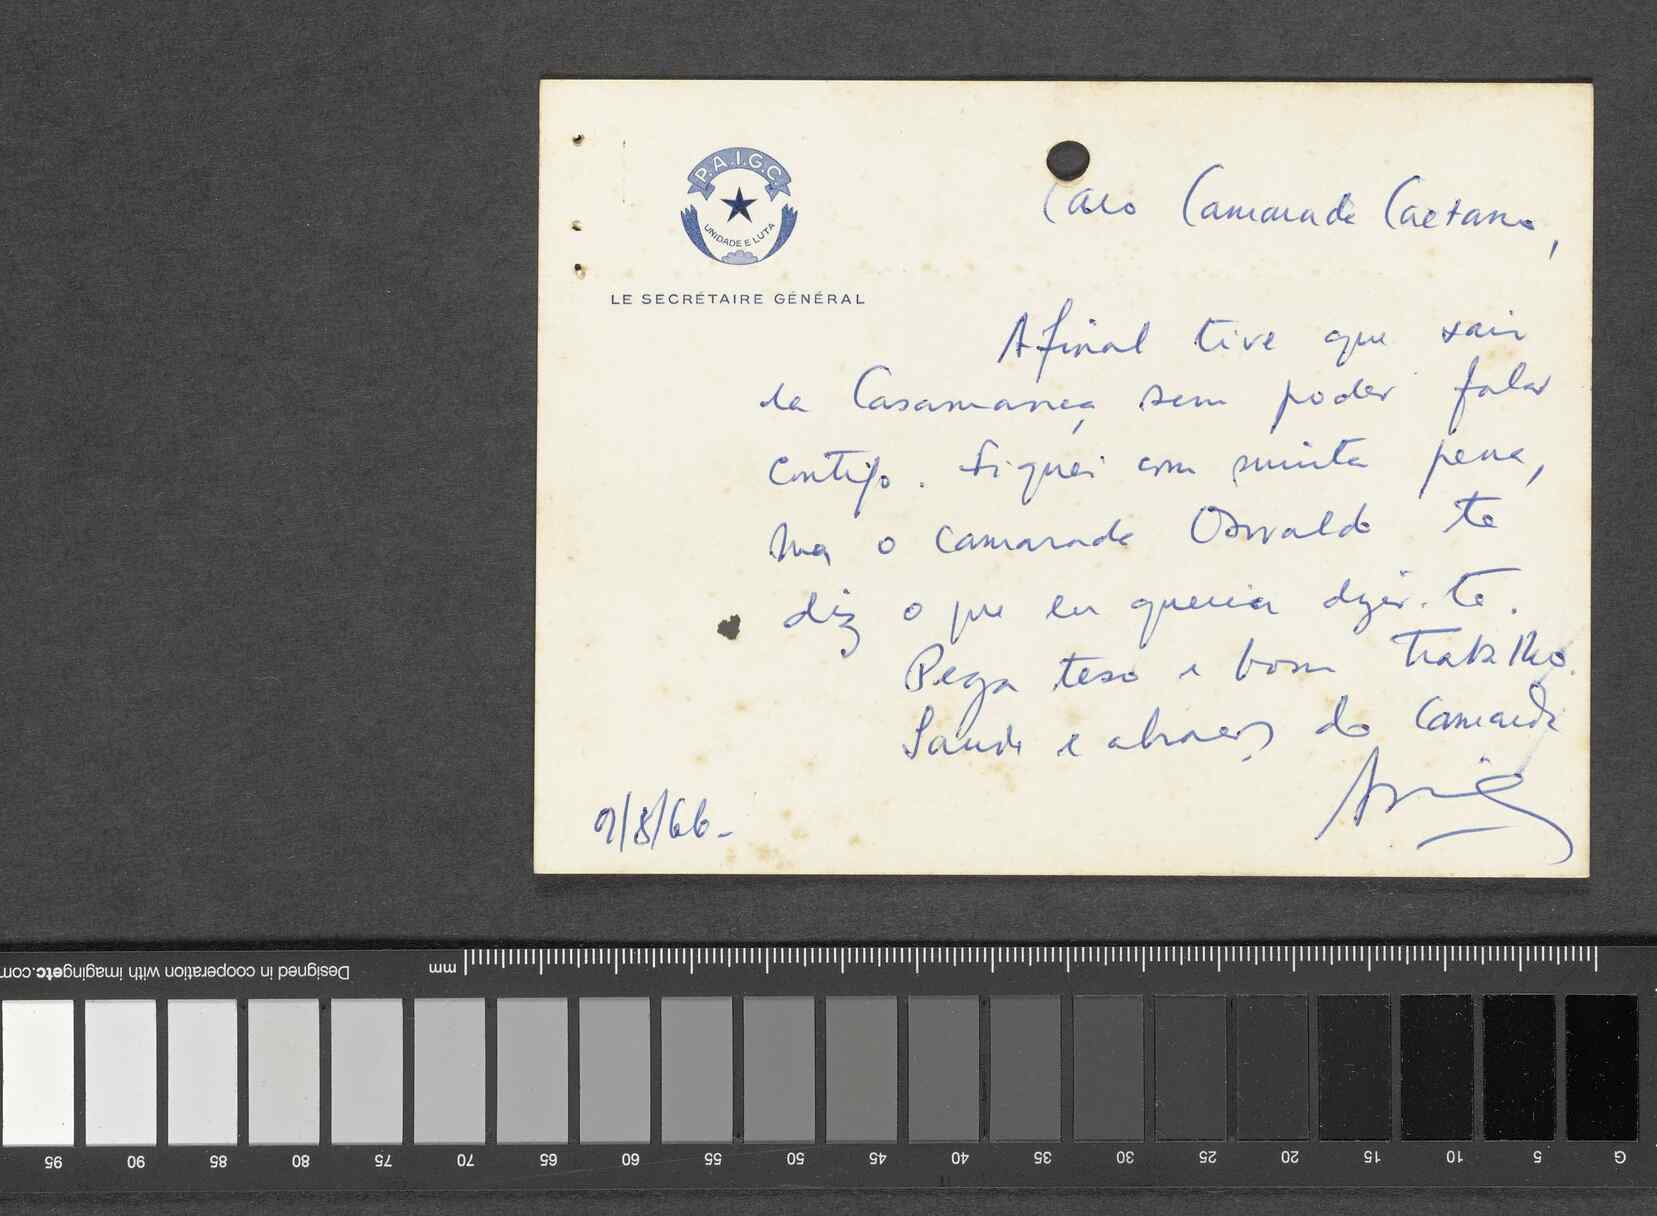 P.A.I.G.C.
UNIDADE E LUTA
LE SECRÉTAIRE GÉNÉRAL
Caro Camarada Caetano,
Afinal tive que sair
da Casamança sem poder falar
contigo. Fiquei com muita pena,
mas o camarada Osvaldo te
diz o que eu queria dizer-te.
Pega teso e bom trabalho.
Saude e abraços do Camarada
9/8/66-
mm
Designed in cooperation with imagingetc.com
95 90 85 80 75 70 65 60 55 50 45 40 35 30 25 20 15 10 5 G